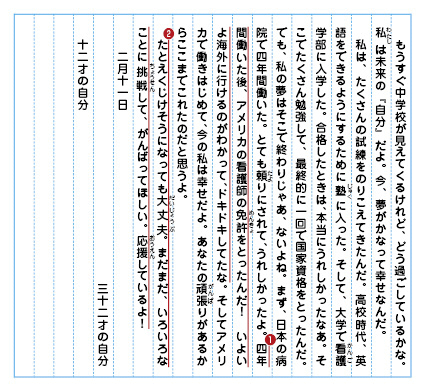 もうすぐ中学校が見えてくるけれど、どう過ごしているかな。
私は未来の『自分』だよ。今、夢がかなって幸せなんだ。
私は、たくさんの試練をのりこえてきたんだ。高校時代、英
語をできるようにするために塾に入った。そして、大学で看護
学部に入学した。合格したときは、本当にうれしかったなあ。そ
こでたくさん勉強して、最終的に一回で国家資格をとったんだ。
ても、私の夢はそこで終わりじゃあ、ないよね。まず、日本の病
院で四年間働いた。とても頼りにされて、うれしかったよ。四年
間働いた後、アメリカの看護師の免許をとったんだ！いよい
よ海外に行けるのがわかって、ドキドキしてたな。そしてアメリ
カで働きはじめて、今の私は幸せだよ。あなたの頑張りがあるか
らここまでこれたのだと思うよ。
たとえくじけそうになっても大丈夫。まだまだ、いろいろな
ことに挑戦して、がんばってほしい。応援しているよ！
二月十一日
三十二才の自分
十二才の自分